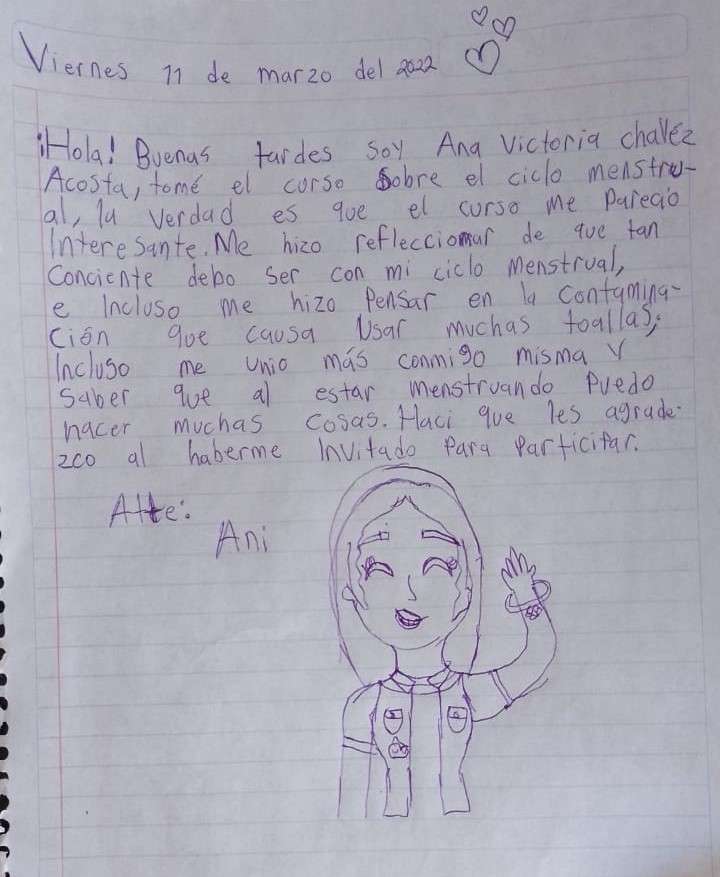 Viernes 11 de marzo del 2022
¡Hola! Buenas tardes soy Ana Victoria chavéz
Acosta, tomé el curso sobre el ciclo menstru-
al, la verdad es que el curso me pareció
Interesante. Me hizo refleccionar de que tan
Conciente debo ser con mi ciclo menstrual,
e Incluso me hizo pensar en la contamina-
ción que causa Usar muchas toallas,
Incluso me unio más conmigo misma y
saber que al estar menstruando puedo
hacer muchas cosas. Haci que les agrade-
zco al haberme Invitado para participar.
Atte:
Ani